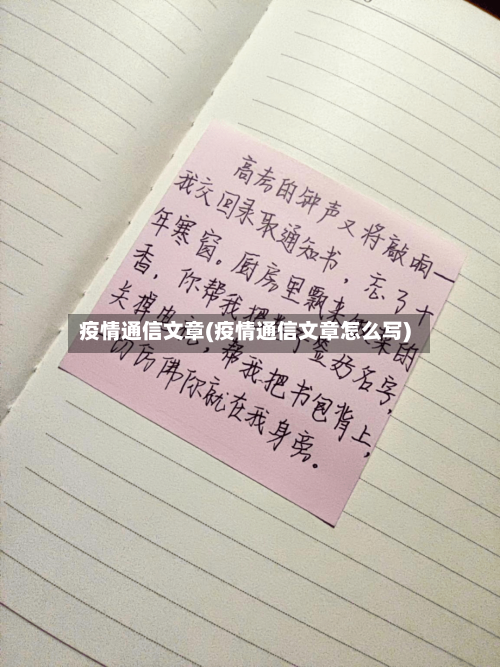 高考的钟声又将敲响——
我交回录取通知书，忘了十
年寒窗。厨房里飘来的
香，你帮我把签好名字，
疫情通信文章(疫情通信文章怎么写)
关掉，帮我把书包背上，
仿佛你就在我身旁。